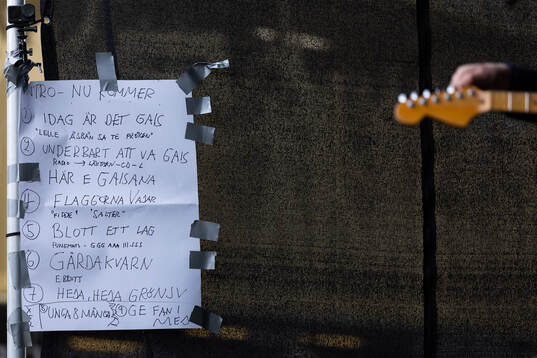 INTRO - NU KOMMER
1 IDAG ÄR DET GAIS
"LELLE
2 UNDERBART ATT VA GAIS
RADIO →
HÄR E GAISANA
4 FLAGGORNA VAJAR
"SALTER"
5 BLOTT ETT LAG
- GGG AAA III SSS
6 GÅRDAKVARN
7 HEJA, HEJA GRÖNSV
UNGA & MÅNGA OGE FAN!
MED